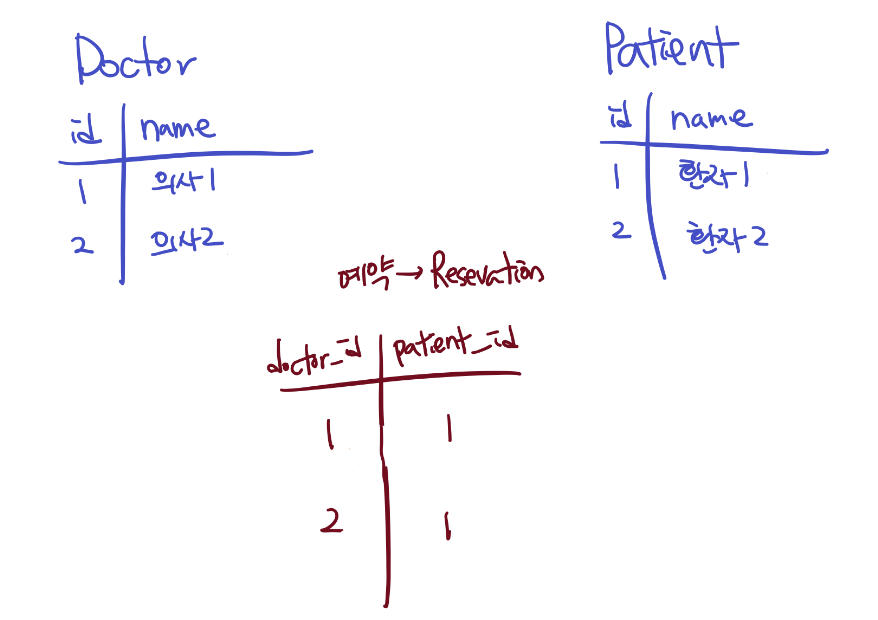 Doctor
id name
1 의사1
2 의사2
Patient
id name
1 환자1
2 환자2
예약→Resevation
doctor_id patient_id
1 1
2 1